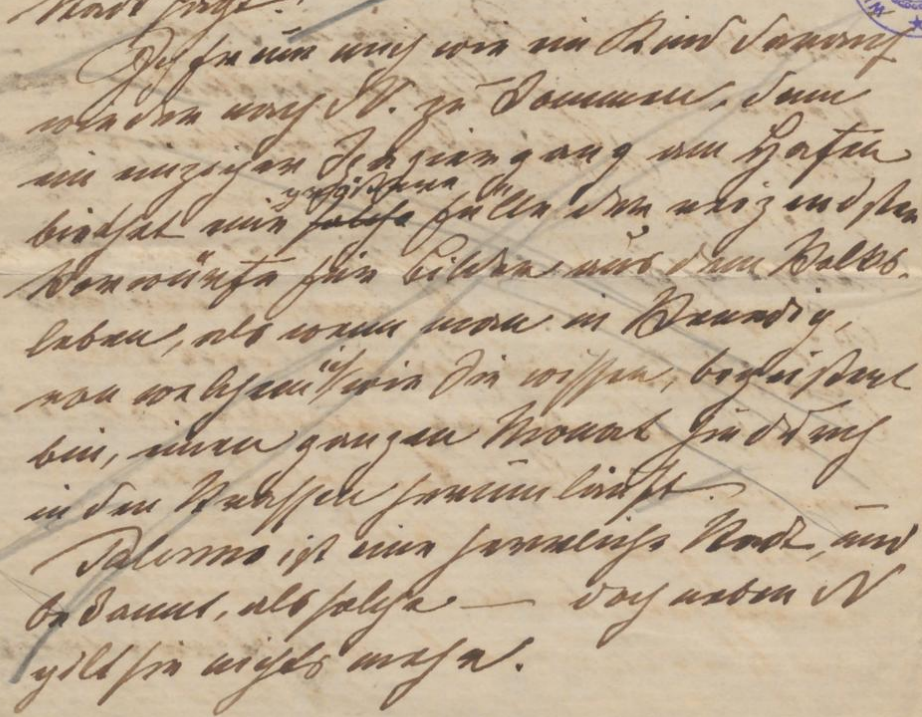 Stadt
Ich freue mich wie ein Kind darauf
wieder nach N. zu kommen, denn
ein einziger Spaziergang am Hafen
größere
biethet eine solche fülle der reizendsten
Vorwürfe für Bilder aus dem Volks-
leben, als wenn man in Venedig,
ich
von welchem wie Sie wissen, begeistert
bin, einen ganzen Monat hindurch
in den Strassen herumläuft.
Palermo ist eine herrliche Stadt, und
bekannt, als solche — doch neben N
gilt sie nichts mehr.